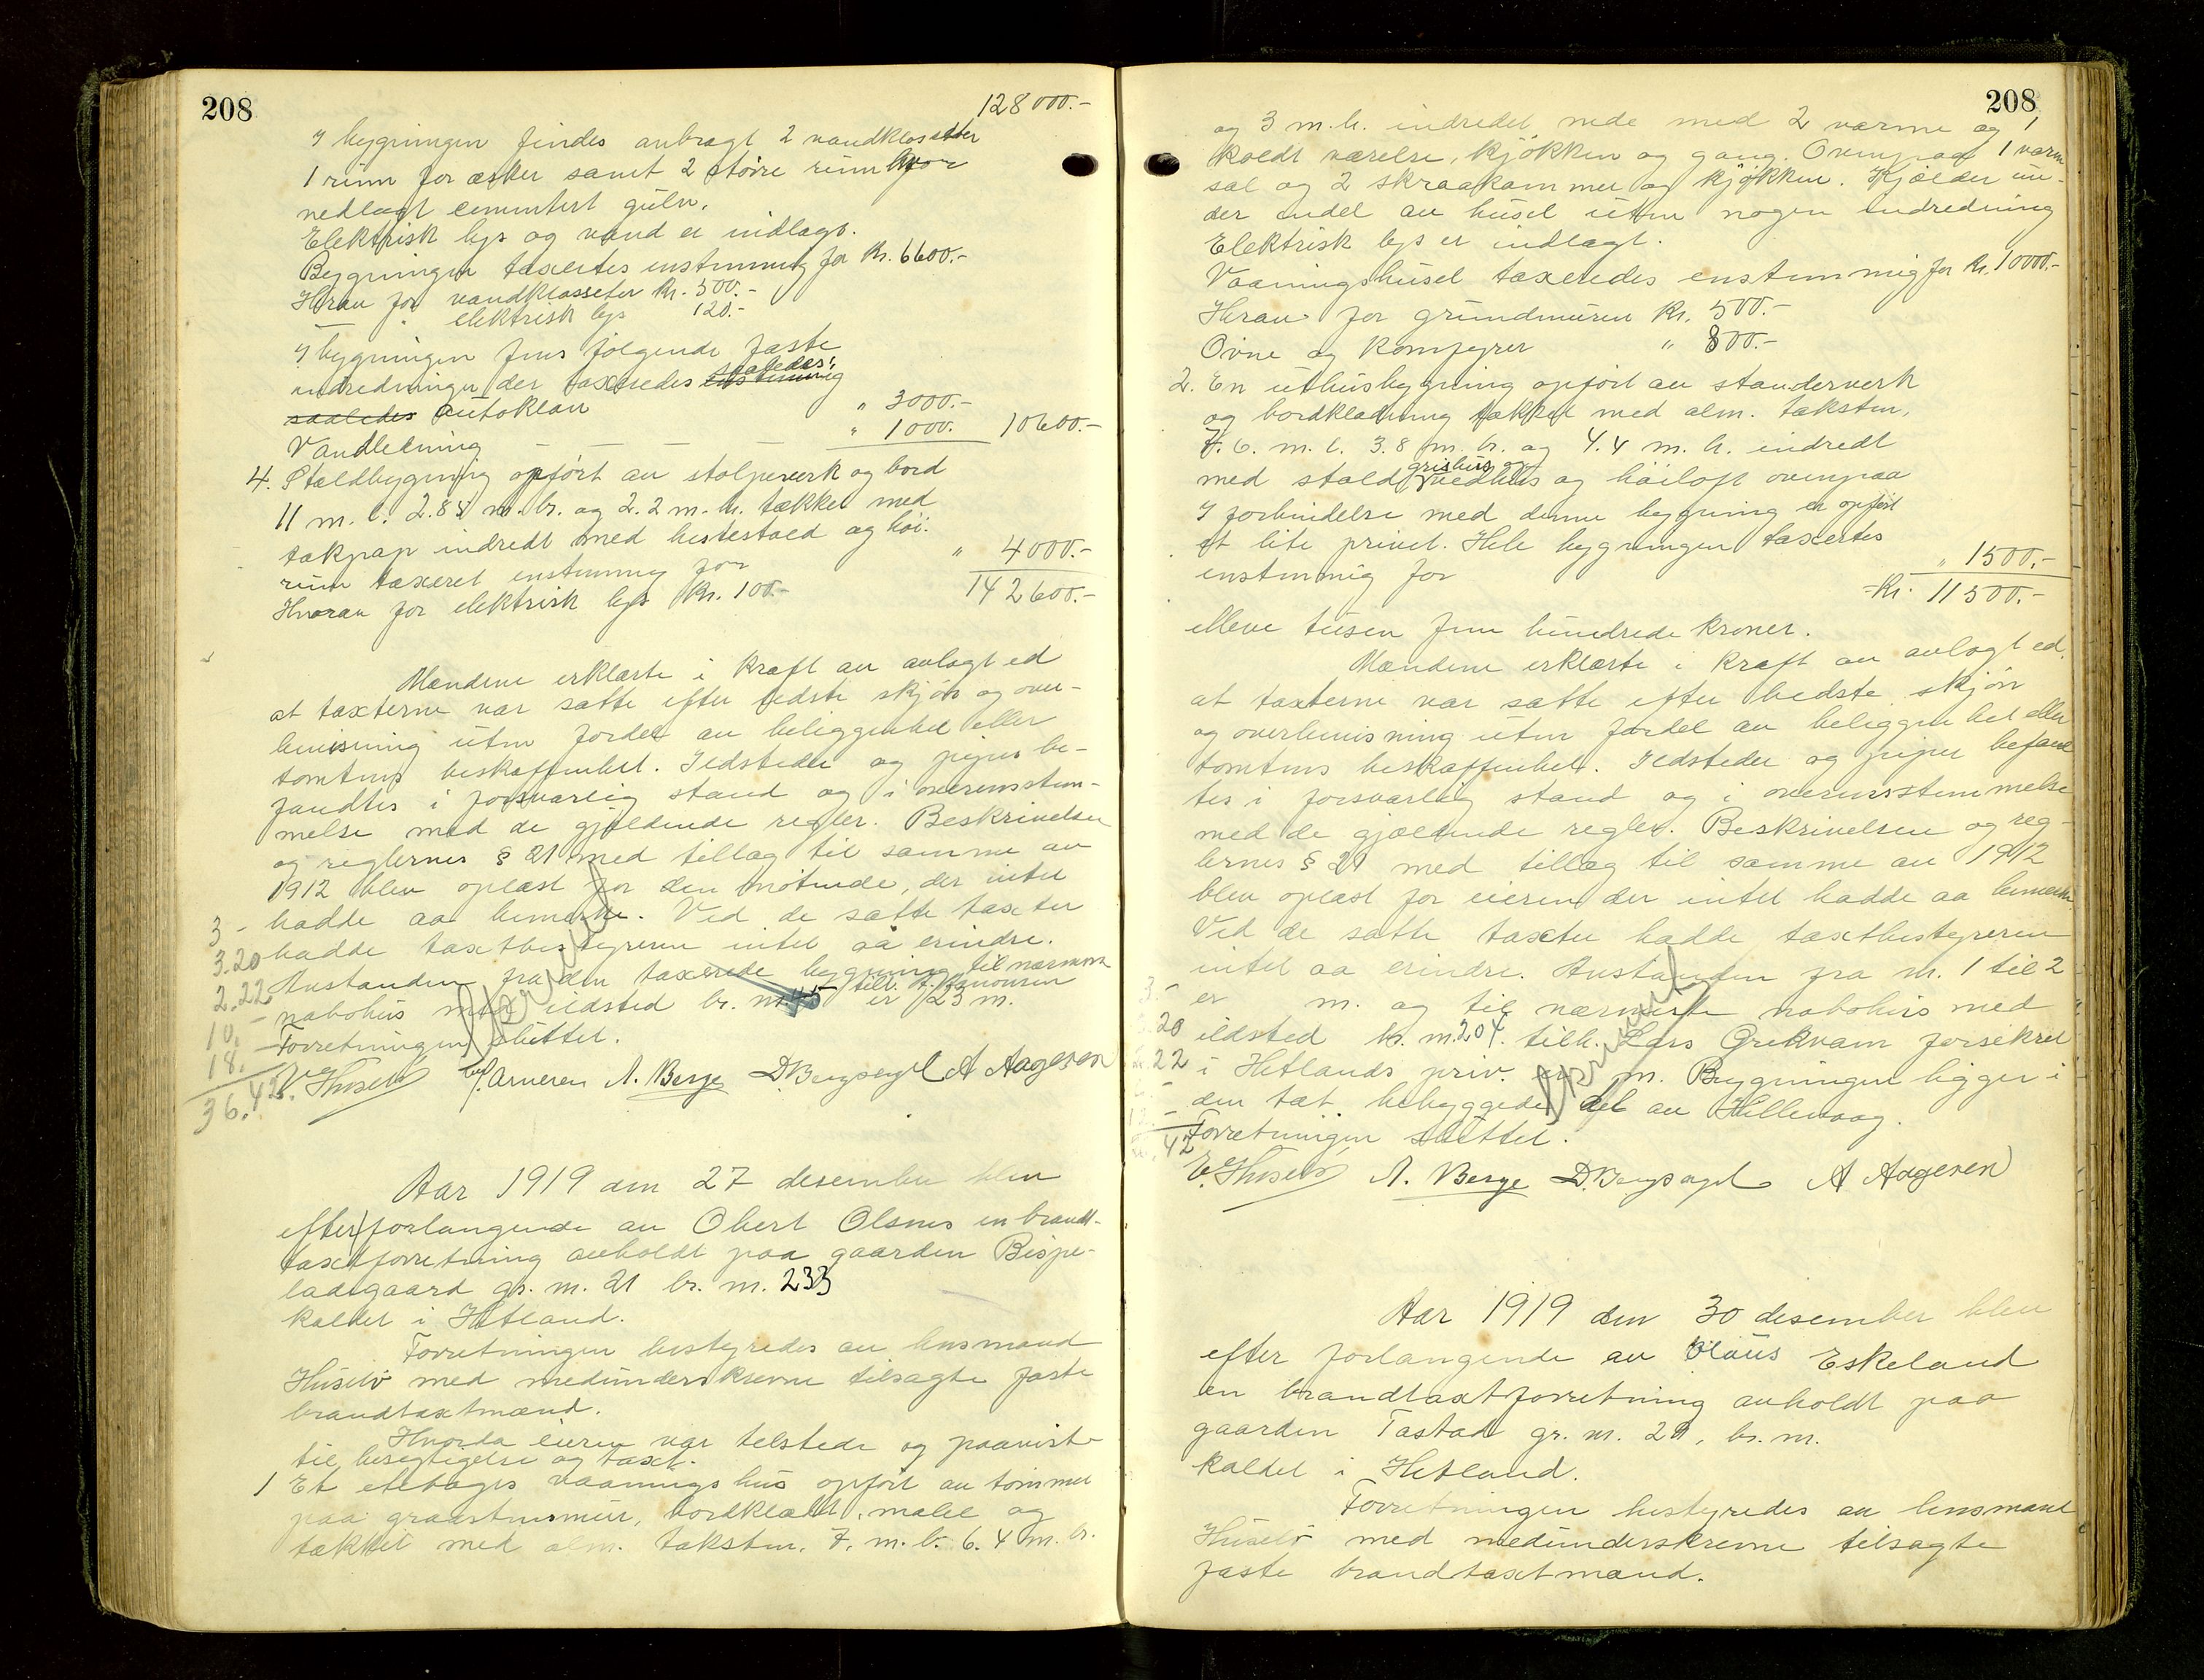 208
128000.-
I bygningen findes anbragt 2 vandklosetter
1 rum for æsker samt 2 större rum hvor
nedlagt cementert gulv.
Elektrisk lys og vand er indlagt.
Bygningen taxertes enstemmig for kr. 6600.-
Herav for vandklosseter kr. 500.-
" elektrisk lys 120.-
I bygningen fins følgende faste
indredninger der taxeredes enstemmig saaledes:
saaledes Autoklav " 3000.-
Vandledning - - - - " 1000.- 10600.-
4. Staldbygning opført av stolpeverk og bord
11 m. l. 2.85 m. br. og 2.2 m. h. tækket med
takpap indredt med hestestald og höi-
rum taxeret enstemmig for " 4000.-
Hvorav for elektrisk lys kr. 100.- 142600.-
Mændene erklærte i kraft av avlagt ed
at taxterne var satte efter bedste skjön og over-
bevisning uten fordel av beliggenhet eller
tomtens beskaffenhet. Ildsteder og piper be-
fandtes i forsvarlig stand og i overensstem-
melse med de gjældende regler. Beskrivelsen
og reglernes § 21 med tillæg til samme av
1912 blev oplæst for den møtende, der intet
hadde aa bemerke. Ved de satte taxter
hadde taxtbestyreren intet aa erindre.
Avstanden fra den taxerede bygning til nærmeste
nabohus med ildsted br. nr. 45 tilh. er 23 m.
Forretningen sluttet.
3 -
3.20
2.22
10. -
18. -
36.42
E. Husebö Arnesen A. Berge D. Bergsagel A Aagesen
Aar 1919 den 27 desember blev
efter forlangende av Obert Olsnes en brandt-
taxtforretning avholdt paa gaarden Bispe-
ladegaard gr. nr. 21 br. nr. 233
kaldet i Hetland.
Forretningen bestyredes av lensmand
Husebö med medunderskrevne tilsagte faste
brandtaxtmænd.
Hvorda eieren var tilstede og paaviste
til besigtigelse og taxt.
1 Et etetages vaaningshus opført av tømmer
paa graastensmur, bordklædt, malet og
tækket med alm. taksten. 7. m. l. 6.4 m. br.
208
og 3 m. h. indredet nede med 2 varme og 1
koldt værelse, kjökken og gang. Ovenpaa 1 varm
sal og 2 skraakammer og kjökken. Kjælder un-
der endel av huset uten nogen indredning
Elektrisk lys er indlagt.
Vaaningshuset taxeredes enstemmig for kr. 10000.-
Herav for grundmuren kr. 500.-
Ovne og komfyrer " 800.-
2. En uthusbygning opført av standerverk
og bordklædning tækket med alm. taksten,
7.6. m. l. 3.8 m. br. og 4.4 m. h. indredt
med stald, grishus og vedhus og höiloft ovenpaa
I forbindelse med denne bygning er opført
et lite privet. Hele bygningen taxertes
enstemmig for " 1500.-
Kr. 11500.-
elleve tusen fem hundrede kroner.
Mændene erklærte i kraft av avlagt ed,
at taxterne var satte efter bedste skjön
og overbevisning uten fordel av beliggenhet eller
tomtens beskaffenhet. Ildsteder og piper befand-
tes i forsvarlig stand og i overensstemmelse
med de gjældende regler. Beskrivelsen og reg-
lernes § 21 med tillæg til samme av 1912
blev oplæst for eieren der intet hadde aa bemerke.
Ved de satte taxter hadde taxtbestyreren
intet aa erindre. Avstanden fra nr. 1 til 2
er m. og til nærmeste nabohus med
ildsted br. nr. 204. tilh. Lars Grekvam forsikret
i Hetlands priv. er m. Bygningen ligger i
den tæt bebyggede del av Hillevaag.
Forretningen sluttet.
3.-
20
22
42
E. Husebö A. Berge D. Bergsagel A Aagesen
Aar 1919 den 30 desember blev
efter forlangende av Olaus Eskeland
en brandtaxtforretning avholdt paa
gaarden Tastad gr. nr. 28, br. nr.
kaldet i Hetland.
Forretningen bestyredes av lensmand
Husebö med medunderskrevne tilsagte
faste brandtaxtmænd.